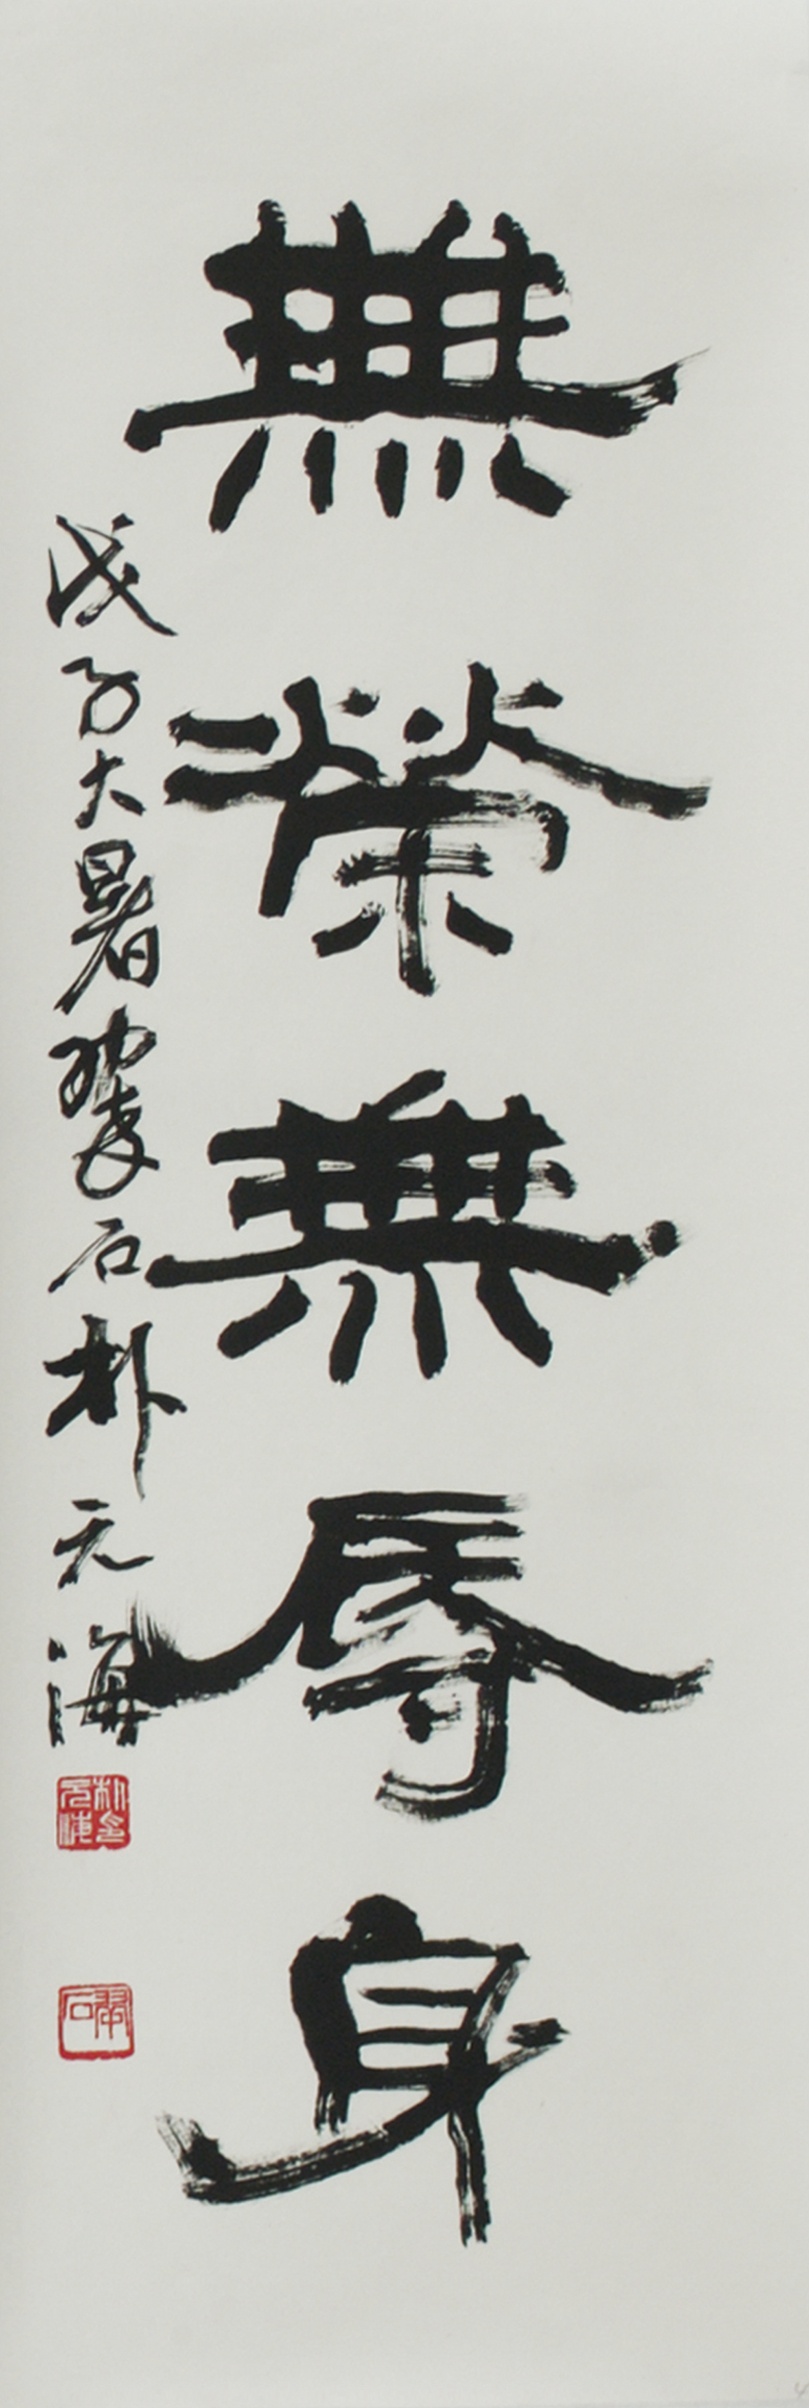 無榮無辱身
戊子大暑翠石朴元海
朴元海印
翠石